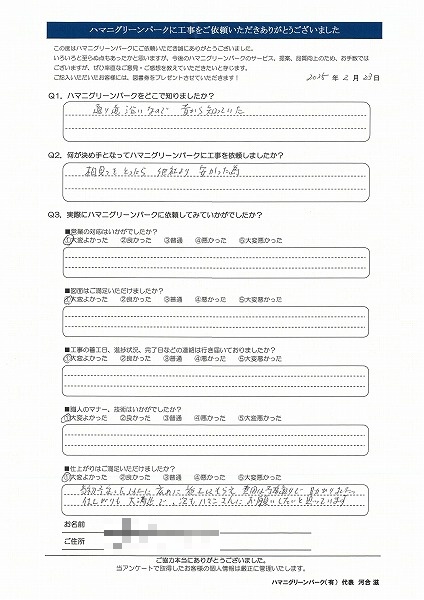 ハマニグリーンパークに工事をご依頼いただきありがとうございました
この度はハマニグリーンパークにご依頼いただき誠にありがとうございました。
いろいろと至らぬ点もあったかと思いますが、今後のハマニグリーンパークのサービス、提案、品質向上のため、お手数では
ございますが、ぜひ率直なご意見・ご感想を教えていただきたいと存じます。
ご記入いただいたお客様には、図書券をプレゼントさせていただきます!
2025年 2月 23日
Q1. ハマニグリーンパークをどこで知りましたか?
通り道沿いなので 昔から知っていた
Q2. 何が決め手となってハマニグリーンパークに工事を依頼しましたか?
相見つをとったら 他社より 安かった為
Q3. 実際にハマニグリーンパークに依頼してみていかがでしたか?
■営業の対応はいかがでしたか?
①大変よかった ②良かった ③普通 ④悪かった ⑤大変悪かった
■図面はご満足いただけましたか?
①大変よかった ②良かった ③普通 ④悪かった ⑤大変悪かった
■工事の着工日、進捗状況、完了日などの連絡は行き届いておりましたか?
①大変よかった ②良かった ③普通 ④悪かった ⑤大変悪かった
■職人のマナー、技術はいかがでしたか?
①大変よかった ②良かった ③普通 ④悪かった ⑤大変悪かった
■仕上がりはご満足いただけましたか?
①大変よかった ②良かった ③普通 ④悪かった ⑤大変悪かった
仕上がりも 大満足で、次もハマニさんに お願いしたいと思っています
お名前
ご住所
ご協力本当にありがとうございました。
当アンケートで取得したお客様の個人情報は厳正に管理いたします。
ハマニグリーンパーク(有) 代表 河合 滋